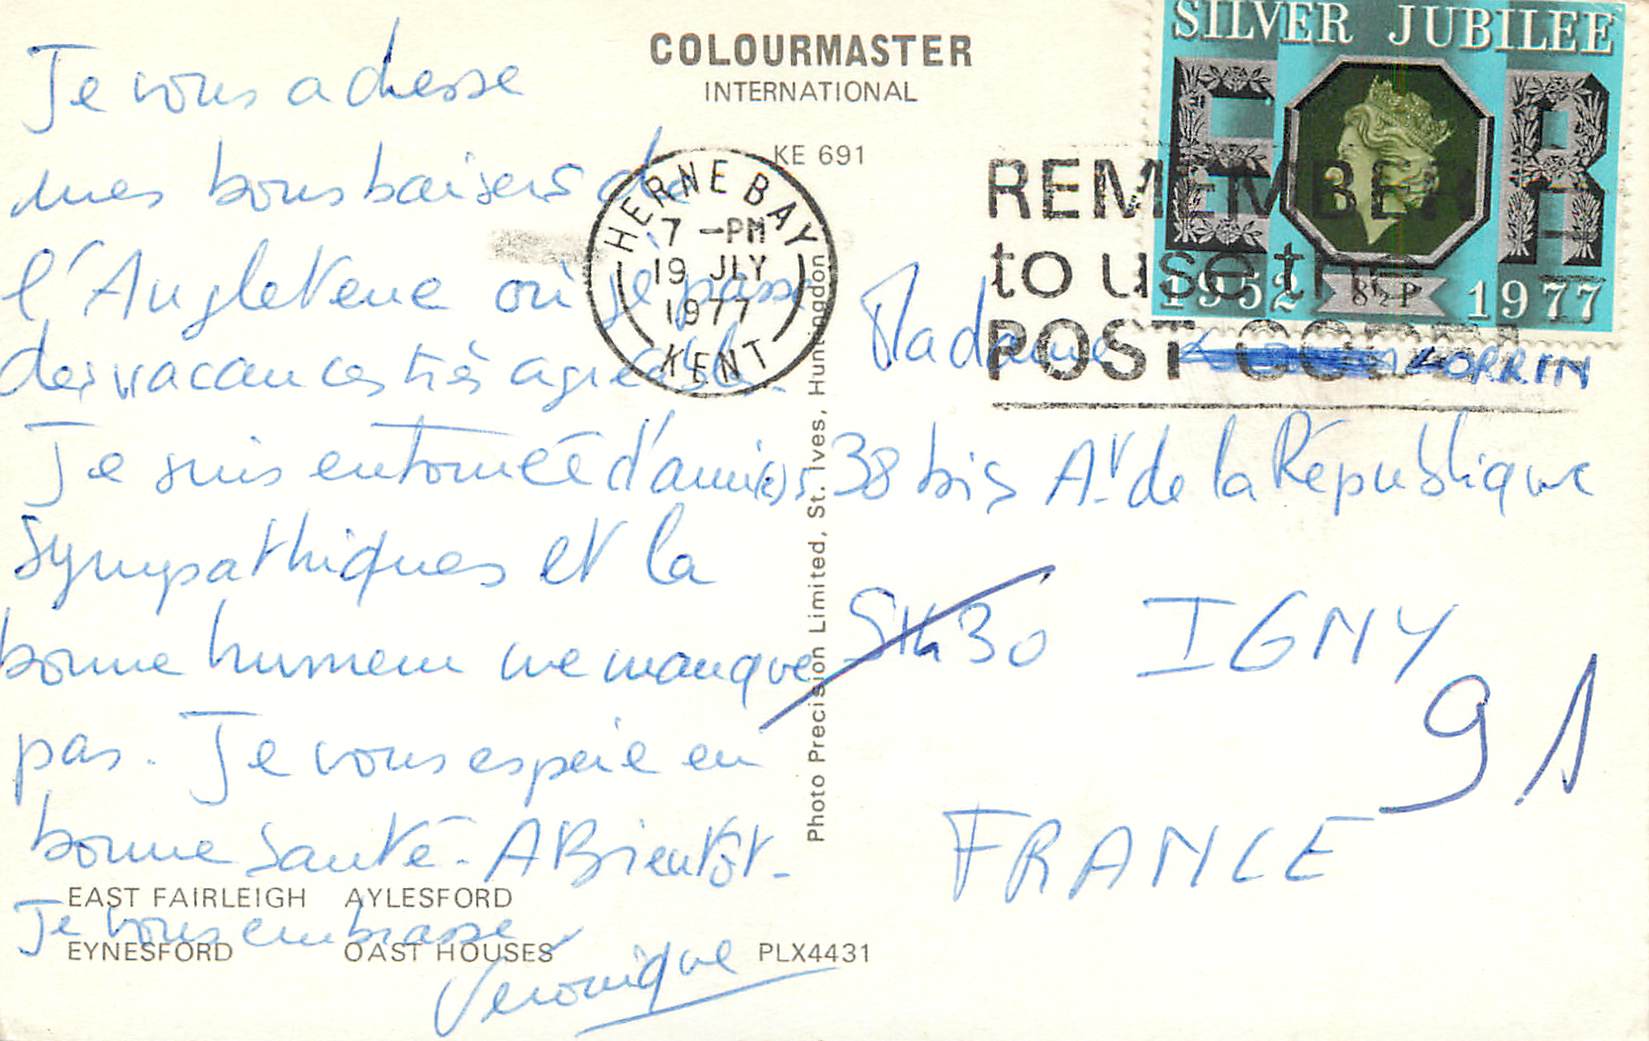 COLOURMASTER
INTERNATIONAL
KE 691
SILVER JUBILEE
1952 8½P 1977
HERNE BAY
7 -PM
19 JLY
1977
KENT
REMEMBER
to use the
POST CODE
Je vous adresse
mes bons baisers de
l'Angleterre où je passe
des vacances très agréable.
Je suis entourée d'ami(e)s
sympathiques et la
bonne humeur ne manque
pas. Je vous espère en
bonne santé - A Bientôt -
Je vous embrasse
Veronique
Madame LORRIN
38 bis Av. de la République
IGNY
91
FRANCE
Photo Precision Limited, St. Ives, Huntingdon
EAST FAIRLEIGH AYLESFORD
EYNESFORD OAST HOUSES PLX4431